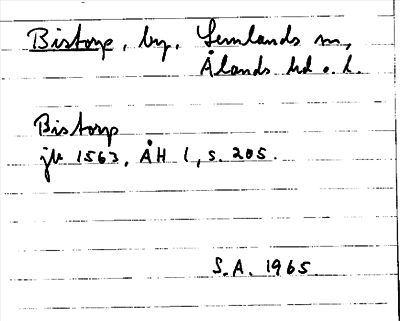 Bistorp, by, Lemlands sn,
Ålands hd o. l.
Bistorp
jb 1563, ÅH 1, s. 205.
S.A. 1965